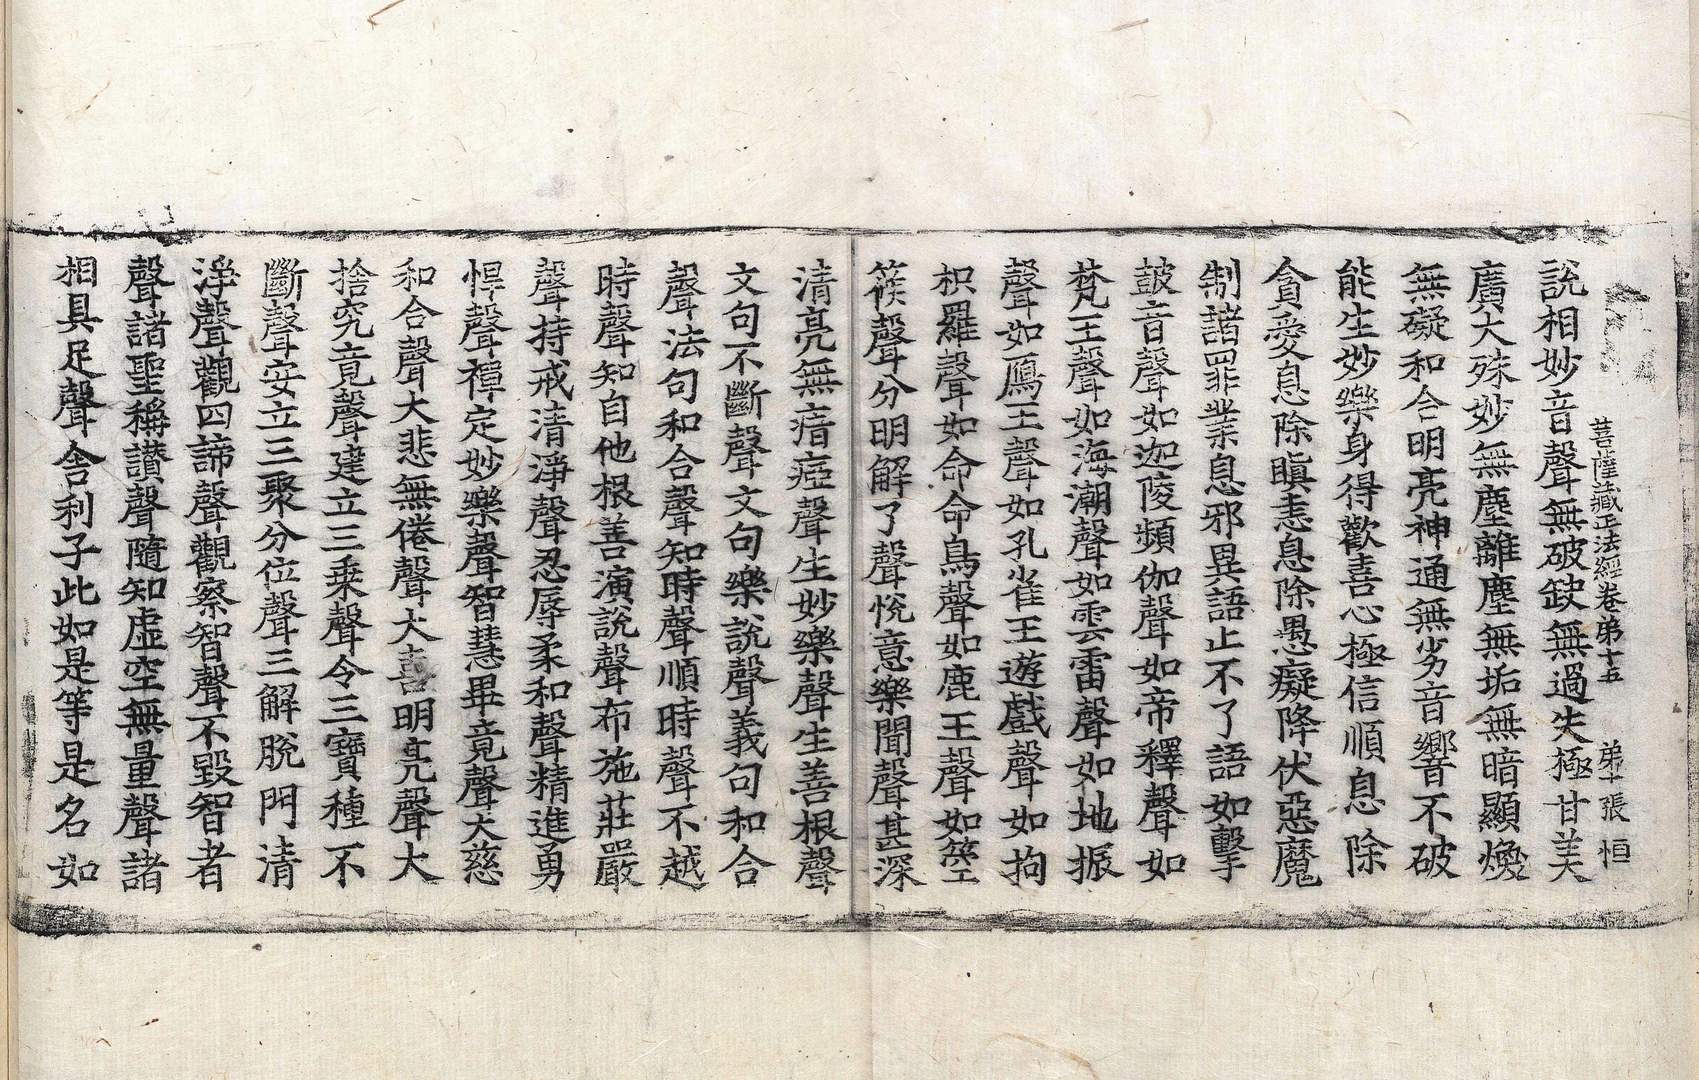 菩薩藏正法經卷第十五 第十張 恒
說相妙音聲無破缺無過失極甘美
廣大殊妙無塵離塵無垢無暗顯煥
無礙和合明亮神通無劣音響不破
能生妙樂身得歡喜心極信順息除
貪愛息除瞋恚息除愚癡降伏惡魔
制諸罪業息邪異語止不了語如擊
鼓音聲如迦陵頻伽聲如帝釋聲如
梵王聲如海潮聲如雲雷聲如地振
聲如鴈王聲如孔雀王遊戲聲如拘
枳羅聲如命命鳥聲如鹿王聲如箜
篌聲分明解了聲悅意樂聞聲甚深
清亮無瘖瘂聲生妙樂聲生善根聲
文句不斷聲文句樂說聲義句和合
聲法句和合聲知時聲順時聲不越
時聲知自他根善演說聲布施莊嚴
聲持戒清淨聲忍辱柔和聲精進勇
悍聲禪定妙樂聲智慧畢竟聲大慈
和合聲大悲無倦聲大喜明亮聲大
捨究竟聲建立三乘聲令三寶種不
斷聲安立三聚分位聲三解脫門清
淨聲觀四諦聲觀察智聲不毀智者
聲諸聖稱讚聲隨知虛空無量聲諸
相具足聲舍利子此如是等是名如